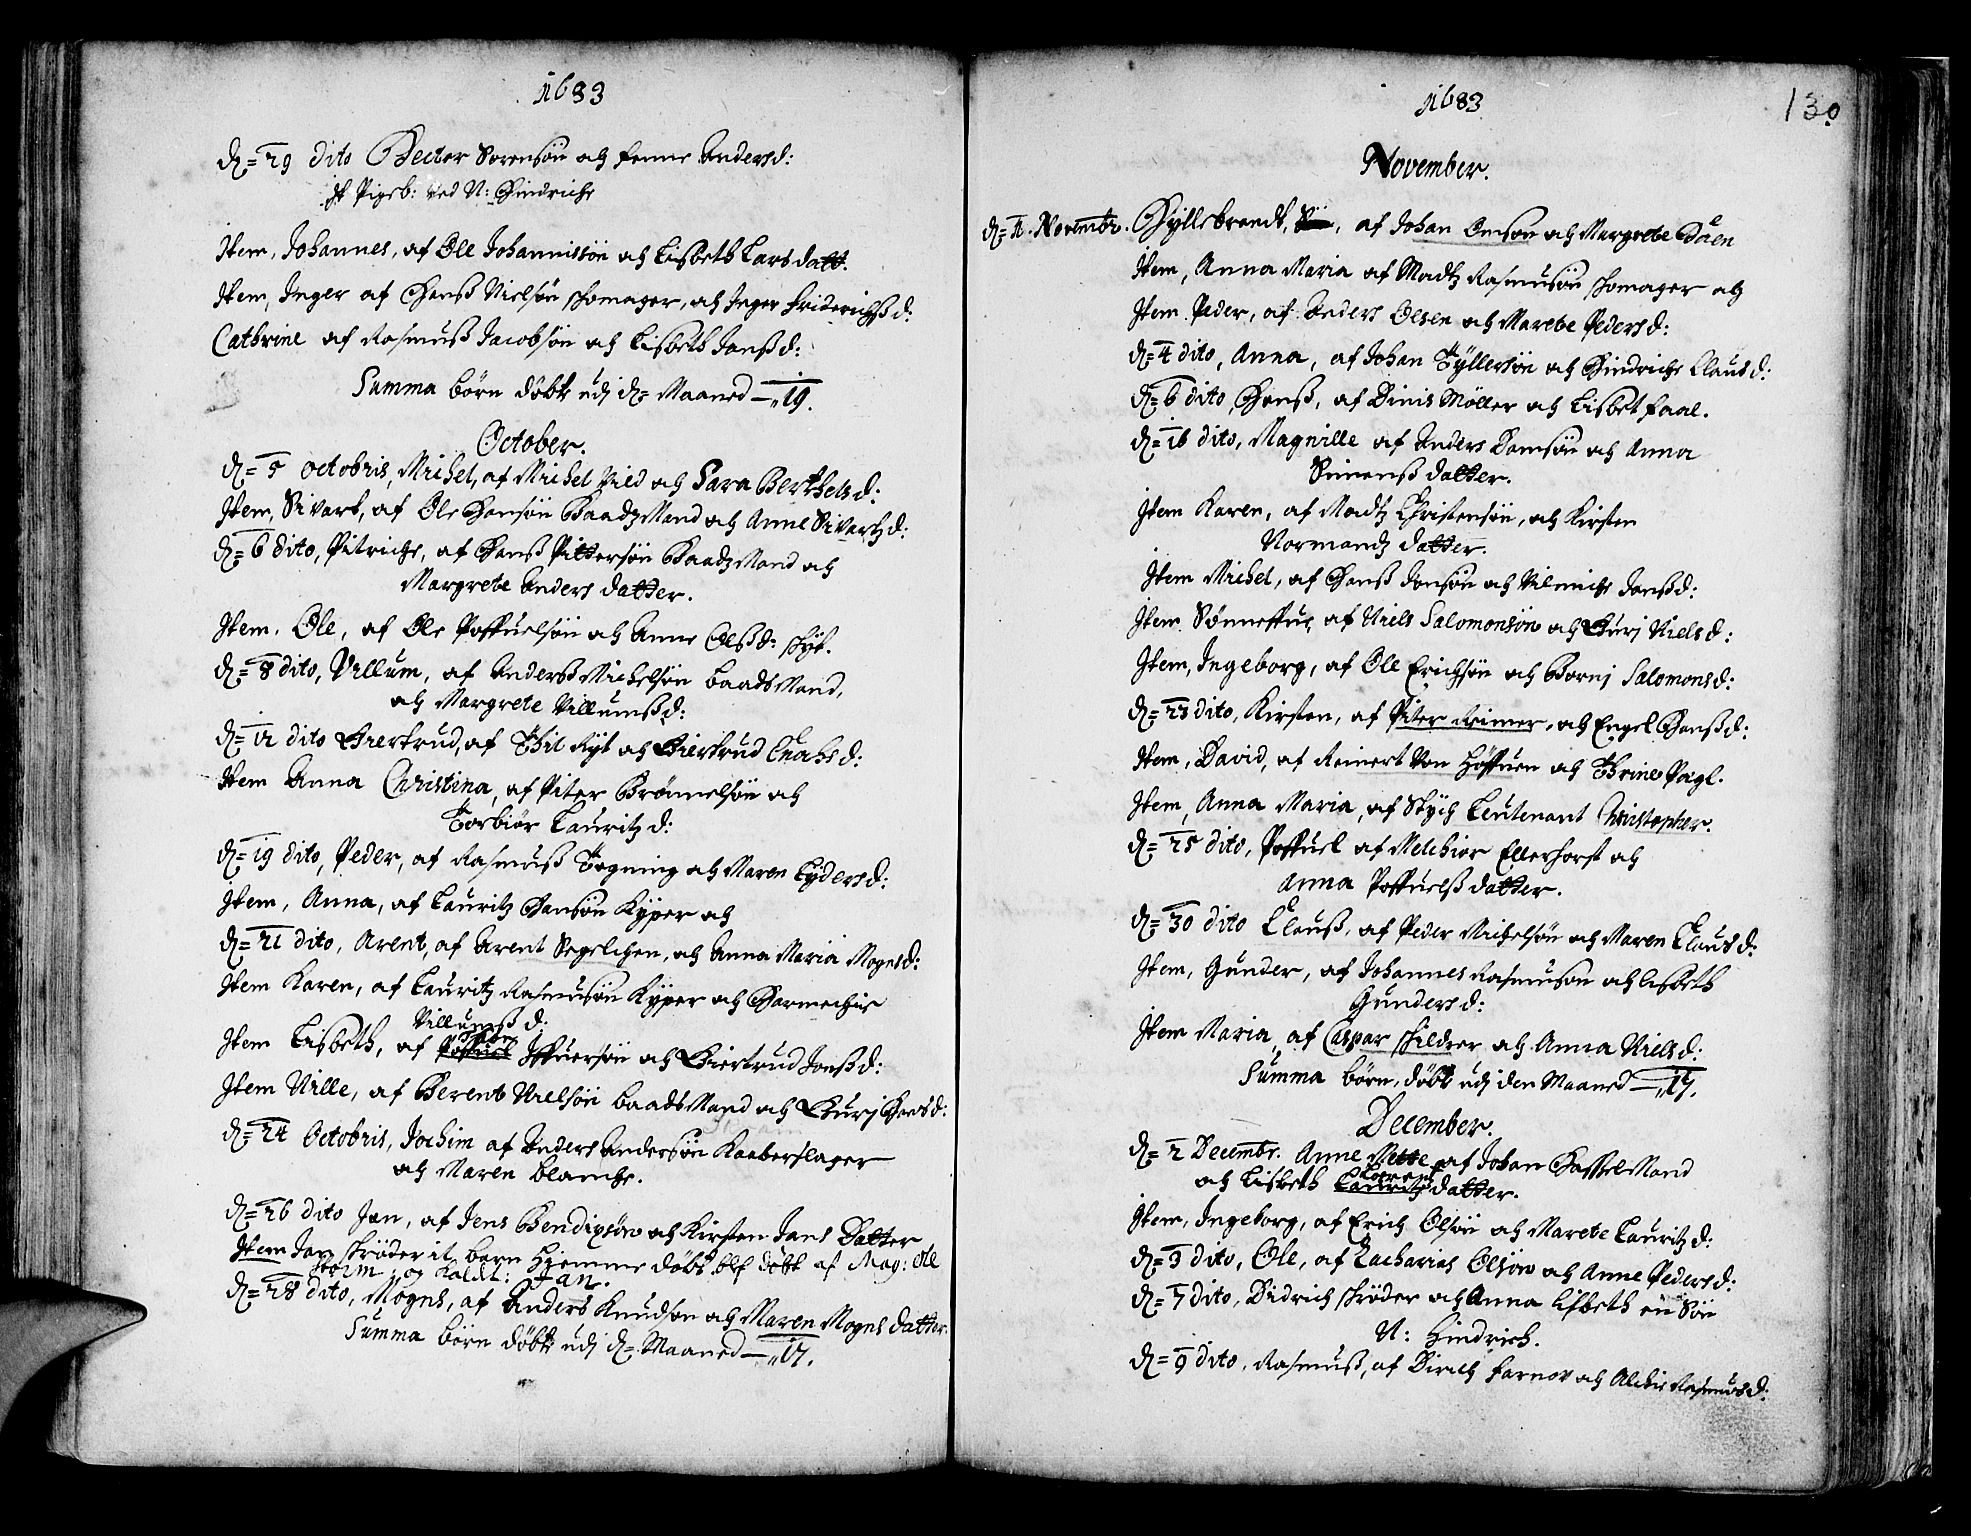 1683
d= 29 dito Hector Sorensøn och Anders d:
Pigeb: ved N: Hindriche
Item, Johannes, af Ole Johannissøn och Lisbeth Lars datt.
Item, Inger af Hanß Nielsøn skomager, och Inger Friderichß d:
Cathrine af Rasmuß Jacobsøn och Lisbeth Janß d:
Summa børn døbt udj d= Maaned — 19.
October.
d= 5 octobris, Michel, af Michel Pild och Sara Berthels d:
Item, Sivart, af Ole Hansøn BaadzMand och Anne Sivartz d:
d= 6 dito, Pitriche, af Hanß Pittersøn BaadzMand och
Margrete Anders datter.
Item. Ole, af Ole Poffuelsøn och Anne Olß d: skÿt.
d= 8 dito, Villum, af Anderß Michelsøn baadsMand,
och Margrete Villumß d:
d= 12 dito Giertrud, af Thil Rÿt och Giertrud d:
Item Anna Christina, af Piter Brønnelsøn och
Torbiør Lauritz d:
d= 19 dito, Peder, af Rasmuß Tegning och Maren Lÿders d:
Item, Anna, af Lauritz Hansøn Kÿper och
d= 21 dito, Arent, af Arent Segelchen, och Anna Maria Mogns d:
Item Karen, af Lauritz Rasmusøn Kÿper och Harmechie
Villumß d:
Item Lisbeth, af Iffuersøn och Giertrud Jonß d:
Item Nille, af Berent Nielsøn baadsMand och Gurj Hans d:
d= 24 Octobris, Jochim af Anders Andersøn Kaaberslager
och Maren blanche.
d= 26 dito Jan, af Jens Bendixsøn och Kirsten Jans Datter
Item Jan skrøder it barn Hjemme døbt blf døbt af Mag: Ole
Storm og Kaldet: Jan.
d= 28 dito, Mogns, af Anders Knudsøn och Maren Mogns datter.
Summa børn døbt udj d= Maaned — 17.
1683
130
November.
d= 2. Novembr. Hÿllebrandt, af Johan Omsøn och Margrete Duen
Item, Anna Maria af Madtz Rasmusøn skomager och
Item Peder, af Anders Olsen och Marete Peders d:
d= 4 dito, Anna, af Johan Tÿllersøn och Hindriche Claus d:
d= 6 dito, Hanß, af Dinis Møller och Lisbet faal.
d= 16 dito, Magnille af Anders Damsøn och Anna
Simenß datter.
Item Karen, af Madtz Christensøn, och Kirsten
Normandz datter.
Item Michel, af Hanß Jansøn och Vilmiche Janß d:
Item Sønneffue, af Niels Salomonsøn och Gurj Niels d:
Item, Ingeborg, af Ole Erichsøn och Bornj Salomons d:
d= 23 dito, Kirsten, af Piter Reimer, och Engel Hanß d:
Item, David, af Reinert Von Høffuen och Thrine Pagl.
Item, Anna Maria, af Stÿch Leutenant Christopher.
d= 25 dito, Poffuel af Melchior Ellerhorst och
Anna Poffuelß datter.
d= 30 dito Clauß, af Peder Michelsøn och Maren Claus d:
Item, Gunder, af Johannes Rasmusøn och lisbeth
Gunders d:
Item Maria, af Caspar skildrer och Anna Niels d:
Summa børn, døbt udj den Maaned — 17.
December.
d= 2 Decembr. Anne Mette af Johan HasselMand
och Lisbeth Lauritz datter.
Item, Ingeborg, af Erich Olsøn och Marete Lauritz d:
d= 3 dito, Ole, af Zacharias Olsøn och Anne Peders d:
d= 7 dito, Didrich skrøder och Anna lisbeth en Søn
N: Hindrich.
d= 9 dito, Rasmuß, af Dirich farnov och Alchie Rasmus d: